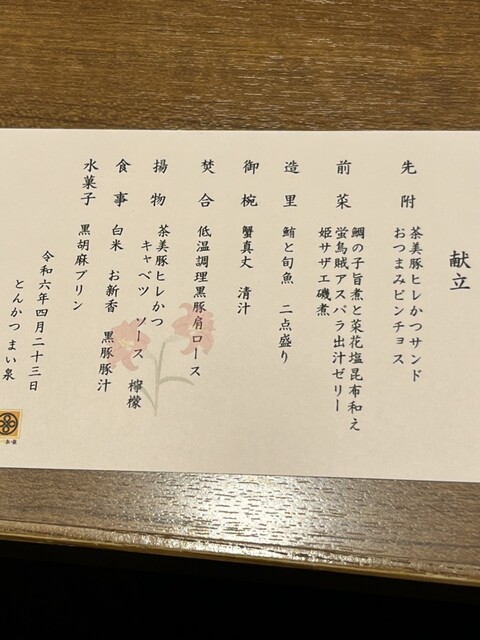 献立
先附 茶美豚ヒレかつサンド
おつまみピンチョス
前菜 鯛の子旨煮と菜花塩昆布和え
蛍烏賊アスパラ出汁ゼリー
姫サザエ磯煮
造里 鮪と旬魚 二点盛り
御椀 蟹真丈 清汁
焚合 低温調理黒豚肩ロース
揚物 茶美豚ヒレかつ
キャベツ ソース 檸檬
食事 白米 お新香 黒豚豚汁
水菓子 黒胡麻プリン
令和六年四月二十三日
とんかつ まい泉